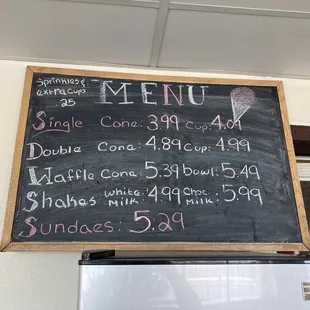 Sprinkles &
extra cups
.25
MENU
Single Cone: 3.99 Cup: 4.09
Double Cone: 4.89 Cup: 4.99
Waffle Cone: 5.39 bowl: 5.49
Shakes white Milk: 4.99 Choc. Milk: 5.99
Sundaes: 5.29